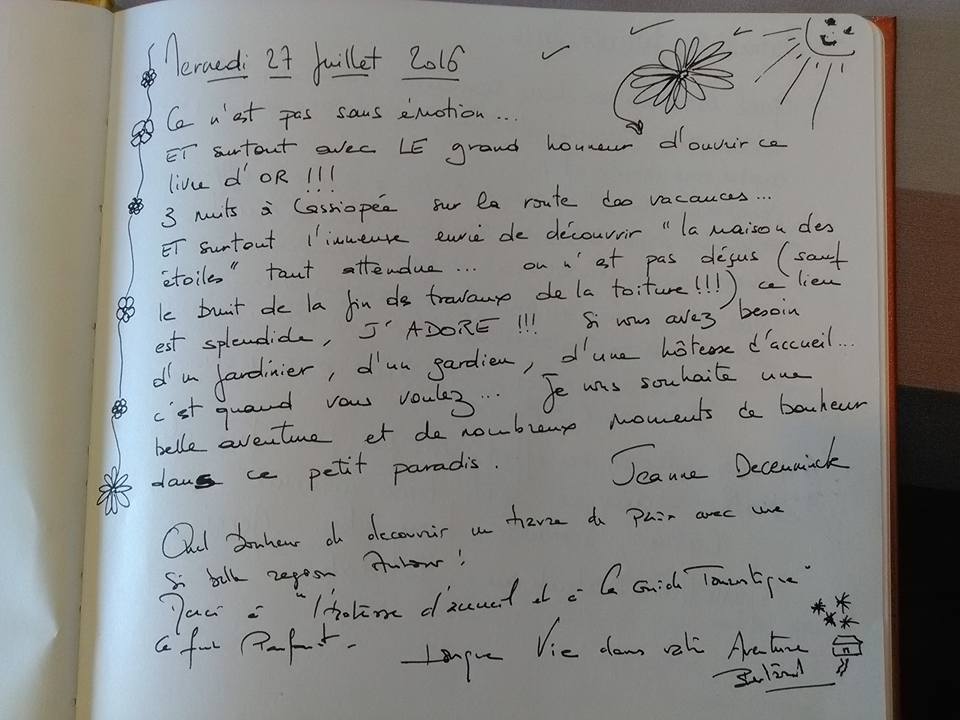 Mercredi 27 Juillet 2016
Ce n'est pas sans émotion...
ET surtout avec LE grand honneur d'ouvrir ce
livre d'OR !!!
3 nuits à Cassiopée sur la route des vacances...
ET surtout l'immense envie de découvrir "la maison des
étoiles" tant attendue... on n'est pas déçus (sauf
le bruit de la fin des travaux de la toiture!!!) ce lieu
est splendide, J'ADORE !!! Si vous avez besoin
d'un jardinier, d'un gardien, d'une hôtesse d'accueil...
c'est quand vous voulez... Je vous souhaite une
belle aventure et de nombreux moments de bonheur
dans ce petit paradis.
Jeanne Deceuninck
Quel bonheur de decouvrir un havre de Paix avec une
Si belle region Autour !
Merci à "l'hotesse d'accueil et à la Guide Touristique"
Ce fut Parfait - Longue Vie dans votre Aventure